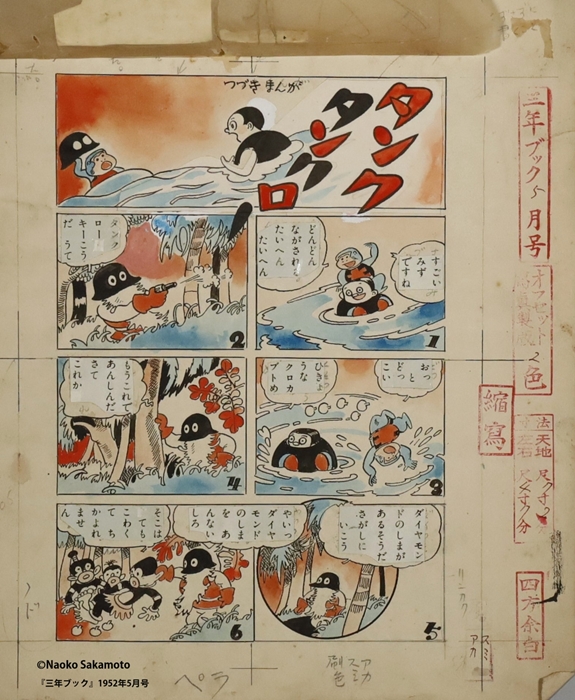 つづきまんが
タンク
タンクロ
すごい
みず
ですね
どんどん
ながされ
たいへん
たいへん
1
タンク
ロー
キーこう
だ うて
2
おっ
と
どっ
こい
ひきょ
うな
クロカ
ブトめ
3
もうこれで
あんしんだ
さて
これか
4
ダイヤモン
ドのしまが
あるそうだ
さがしに
いこう
5
やいっ
ダイヤ
モンド
のしま
をあ
んない
しろ
そこは
とても
こわく
てち
かよれ
ませ
ん
6
三年ブック 5月号
オフセット 2色
縮寫
法 天地
左右
四方余白
スミ
アカ
刷色
スミ
アカ
ペラ
©Naoko Sakamoto
『三年ブック』1952年5月号